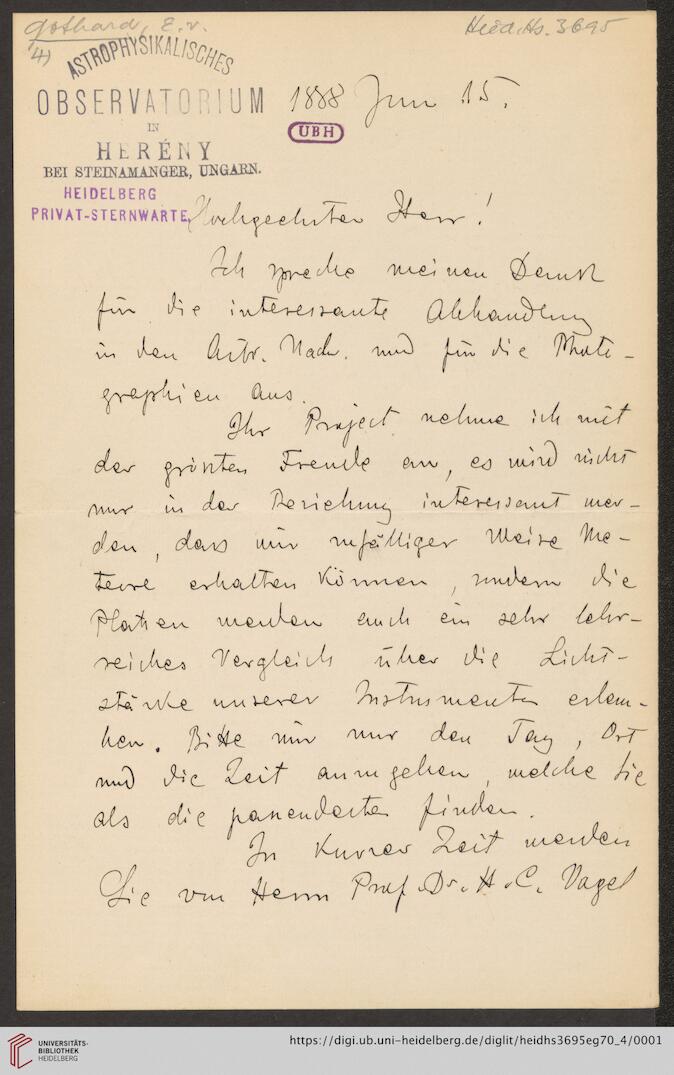 Gothard, E. v.
Heid. Hs. 3695
4)
ASTROPHYSIKALISCHES
OBSERVATORIUM
IN
HERÉNY
BEI STEINAMANGER, UNGARN.
1888 Jun 15.
UBH
HEIDELBERG
PRIVAT-STERNWARTE
Hochgeehrter Herr!
Ich spreche meinen Dank
für die interessante Abhandlung
in den Astr. Nachr. und für die Photo-
graphien aus.
Ihr Project nehme ich mit
der grössten Freude an, es wird nicht
nur in der Beziehung interessant wer-
den, dass wir zufälliger Weise Me-
teore erhalten können, sondern die
Platten werden auch ein sehr lehr-
reiches Vergleich über die Licht-
stärke unserer Instrumente erlau-
ben. Bitte mir nur den Tag, Ort
und die Zeit anzugeben, welche Sie
als die passendsten finden.
In kurzer Zeit werden
Sie von Herrn Prof. Dr. H. C. Vogel
UNIVERSITÄTS-
BIBLIOTHEK
HEIDELBERG
https://digi.ub.uni-heidelberg.de/diglit/heidhs3695eg70_4/0001